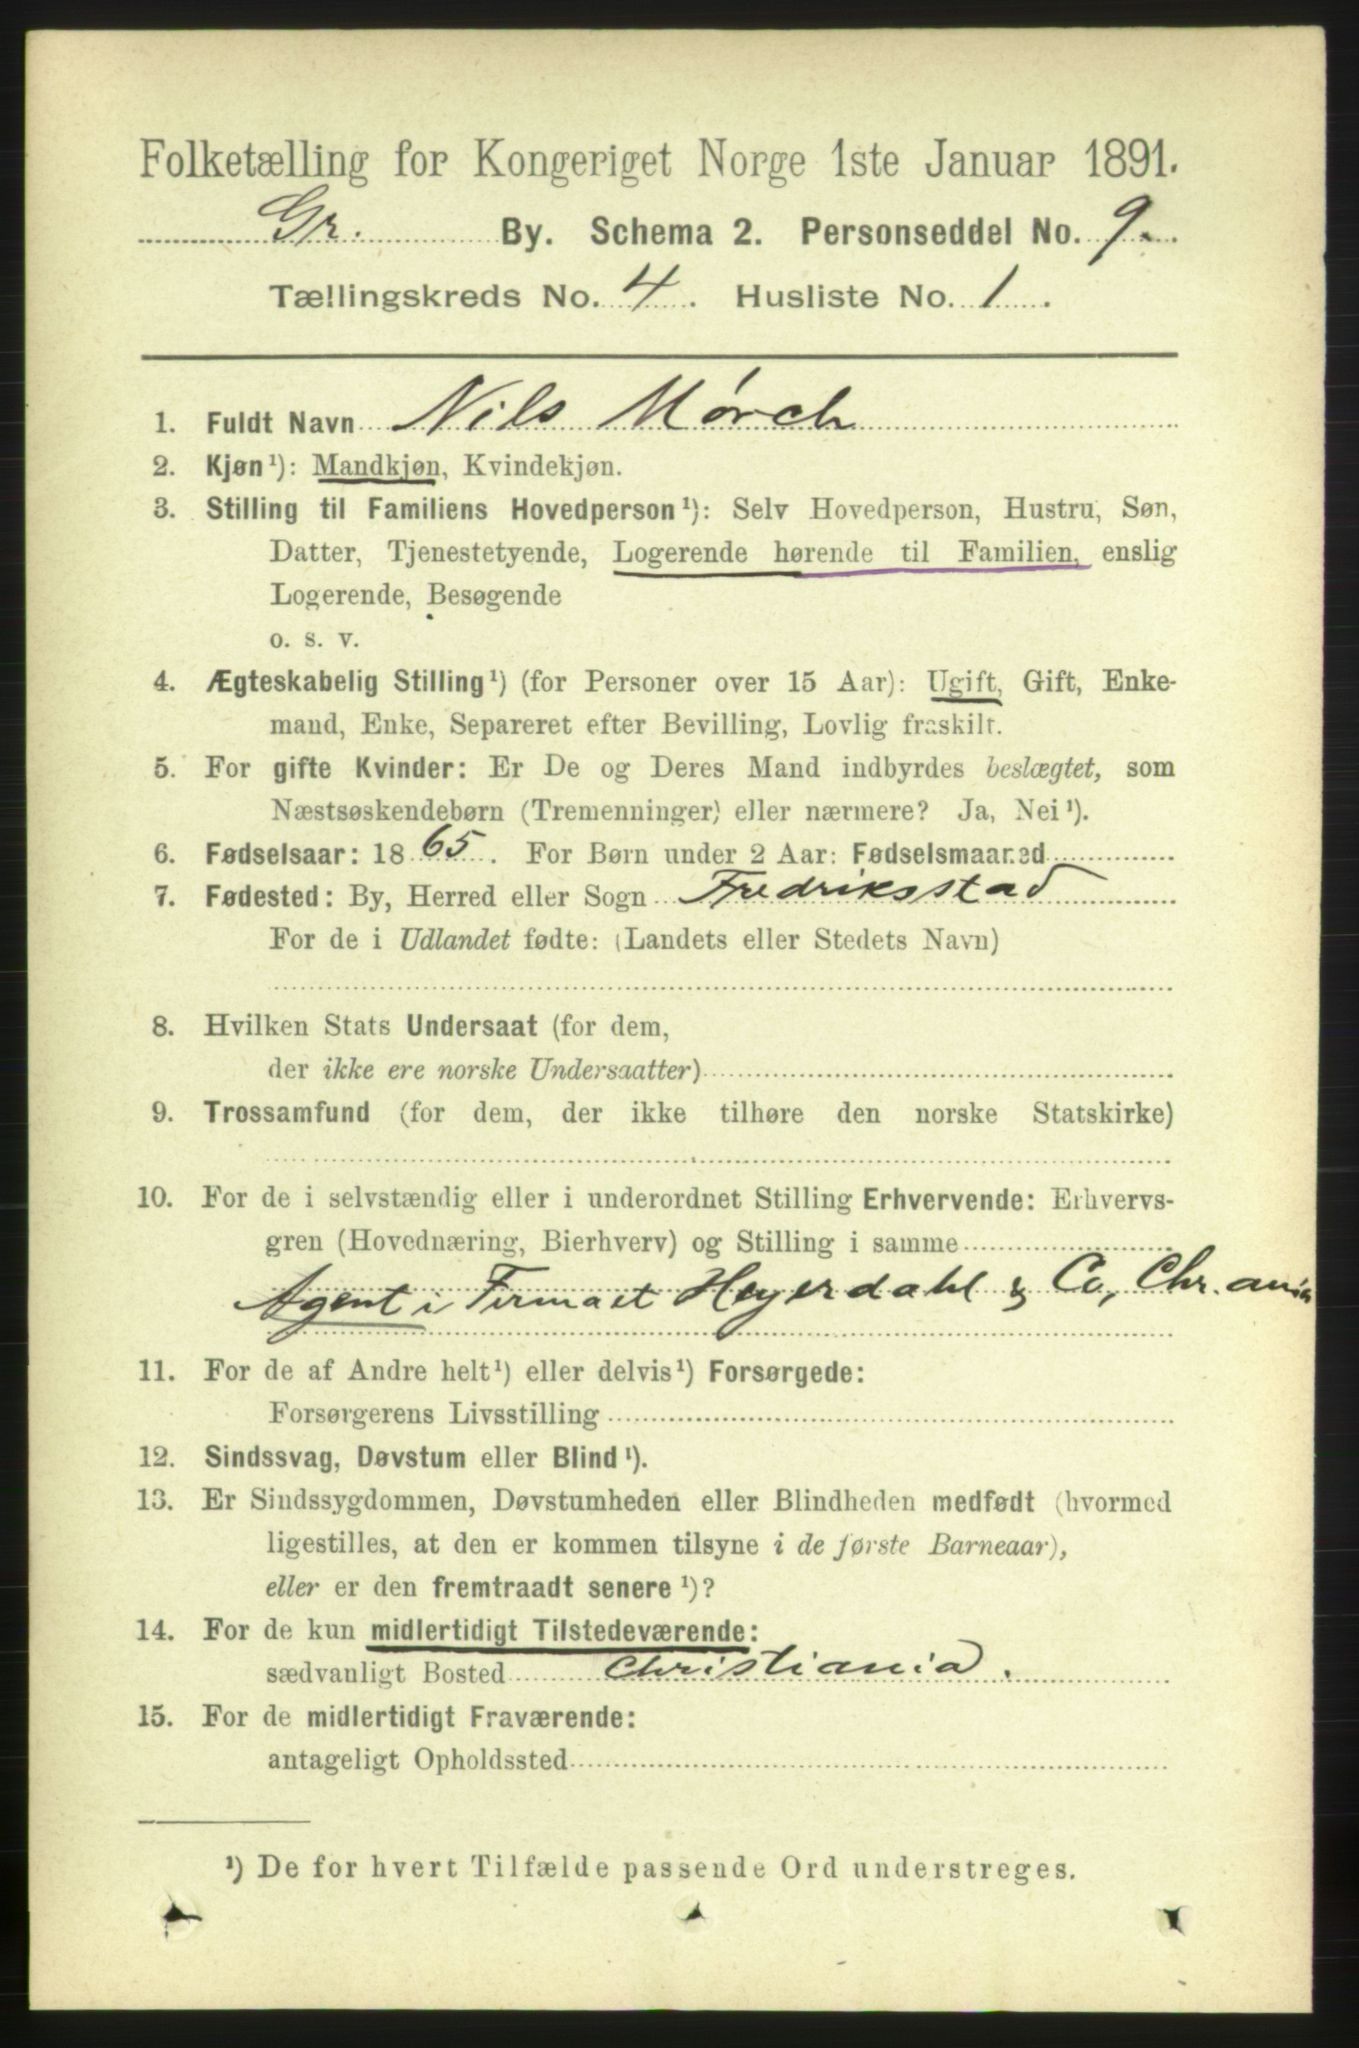 Folketælling for Kongeriget Norge 1ste Januar 1891.
Gr. By. Schema 2. Personseddel No. 9.
Tællingskreds No. 4. Husliste No. 1.
1. Fuldt Navn Nils Mørch
2. Kjøn¹): Mandkjøn, Kvindekjøn.
3. Stilling til Familiens Hovedperson¹): Selv Hovedperson, Hustru, Søn,
Datter, Tjenestetyende, Logerende hørende til Familien, enslig
Logerende, Besøgende
o. s. v.
4. Ægteskabelig Stilling¹) (for Personer over 15 Aar): Ugift, Gift, Enke-
mand, Enke, Separeret efter Bevilling, Lovlig fraskilt.
5. For gifte Kvinder: Er De og Deres Mand indbyrdes beslægtet, som
Næstsøskendebørn (Tremenninger) eller nærmere? Ja, Nei¹).
6. Fødselsaar: 1865. For Børn under 2 Aar: Fødselsmaaned
7. Fødested: By, Herred eller Sogn Fredriksstad
For de i Udlandet fødte: (Landets eller Stedets Navn)
8. Hvilken Stats Undersaat (for dem,
der ikke ere norske Undersaatter)
9. Trossamfund (for dem, der ikke tilhøre den norske Statskirke)
10. For de i selvstændig eller i underordnet Stilling Erhvervende: Erhvervs-
gren (Hovednæring, Bierhverv) og Stilling i samme
Agent i Firmaet Heyerdahl & Co, Chr.ania
11. For de af Andre helt¹) eller delvis¹) Forsørgede:
Forsørgerens Livsstilling
12. Sindssvag, Døvstum eller Blind¹).
13. Er Sindssygdommen, Døvstumheden eller Blindheden medfødt (hvormed
ligestilles, at den er kommen tilsyne i de første Barneaar),
eller er den fremtraadt senere¹)?
14. For de kun midlertidigt Tilstedeværende:
sædvanligt Bosted Christiania.
15. For de midlertidigt Fraværende:
antageligt Opholdssted
¹) De for hvert Tilfælde passende Ord understreges.